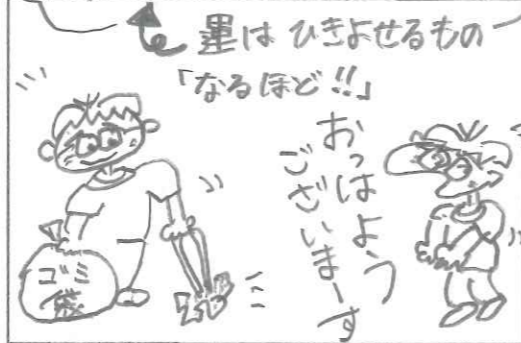 運は ひきよせるもの
「なるほど!!」
おっはよう
ございまーす
ゴミ
袋